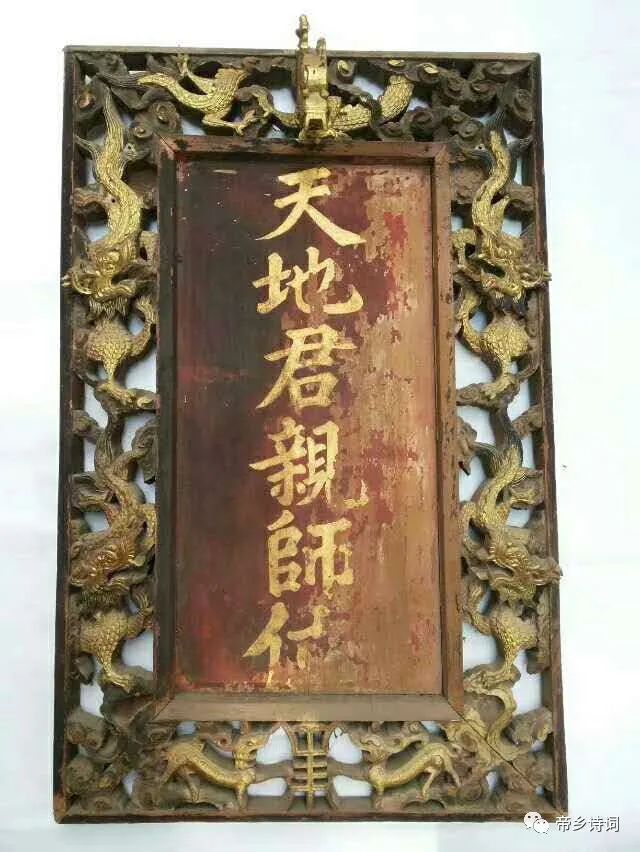 天地君親師位
帝乡诗词